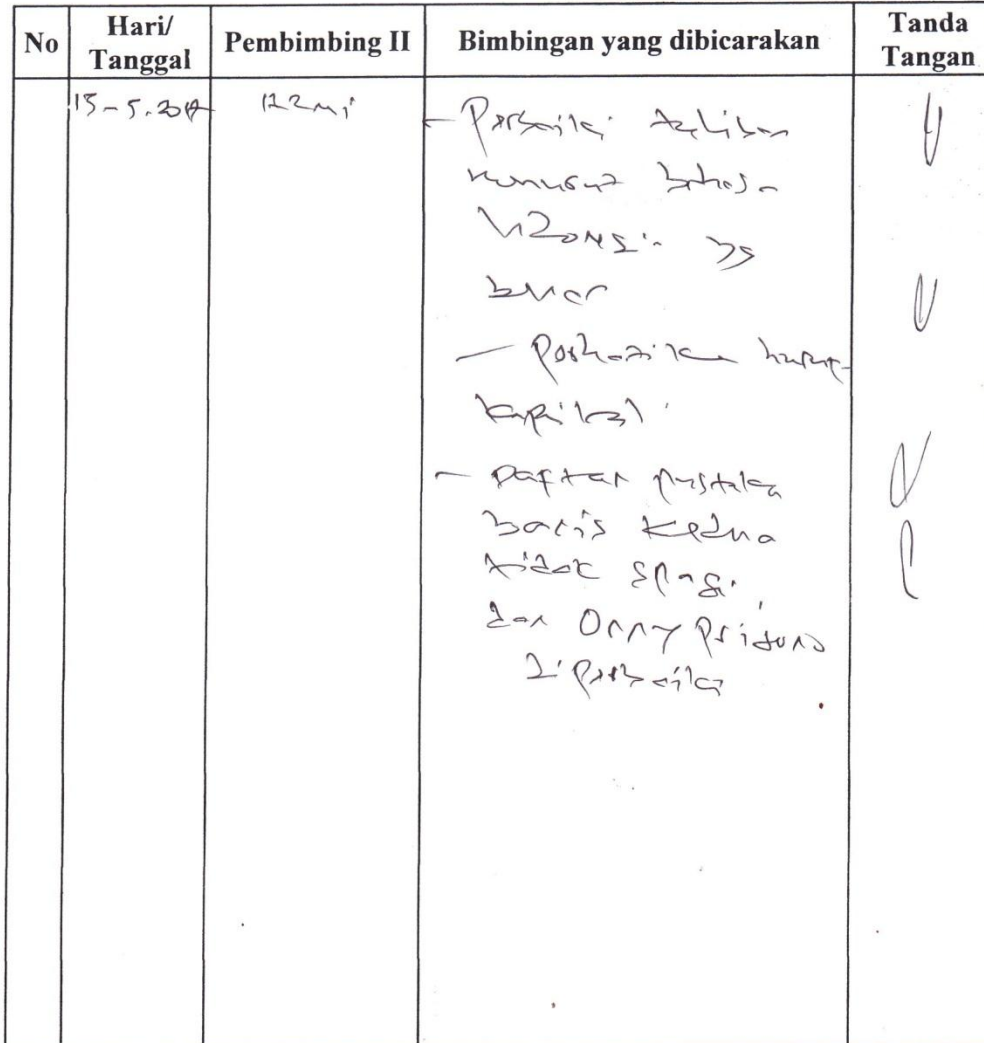 No
Hari/
Tanggal
Pembimbing II
Bimbingan yang dibicarakan
Tanda
Tangan
- Perbaiki
bahasa
yg
benar
- Perhatikan huruf
kapital
- Daftar pustaka
baris kedua
tidak spasi
dan Onny
diperbaiki